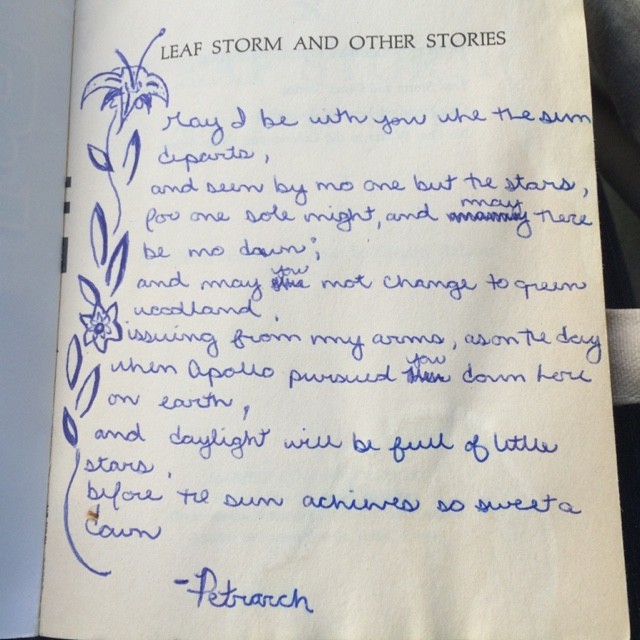 LEAF STORM AND OTHER STORIES
May I be with you whe the sun
departs,
and seen by no one but the stars,
for one sole night, and may there
be no dawn;
and may you not change to green
woodland,
issuing from my arms, as on the day
when Apollo pursued you down here
on earth,
and daylight will be full of little
stars,
before the sun achieves so sweet a
dawn
-Petrarch